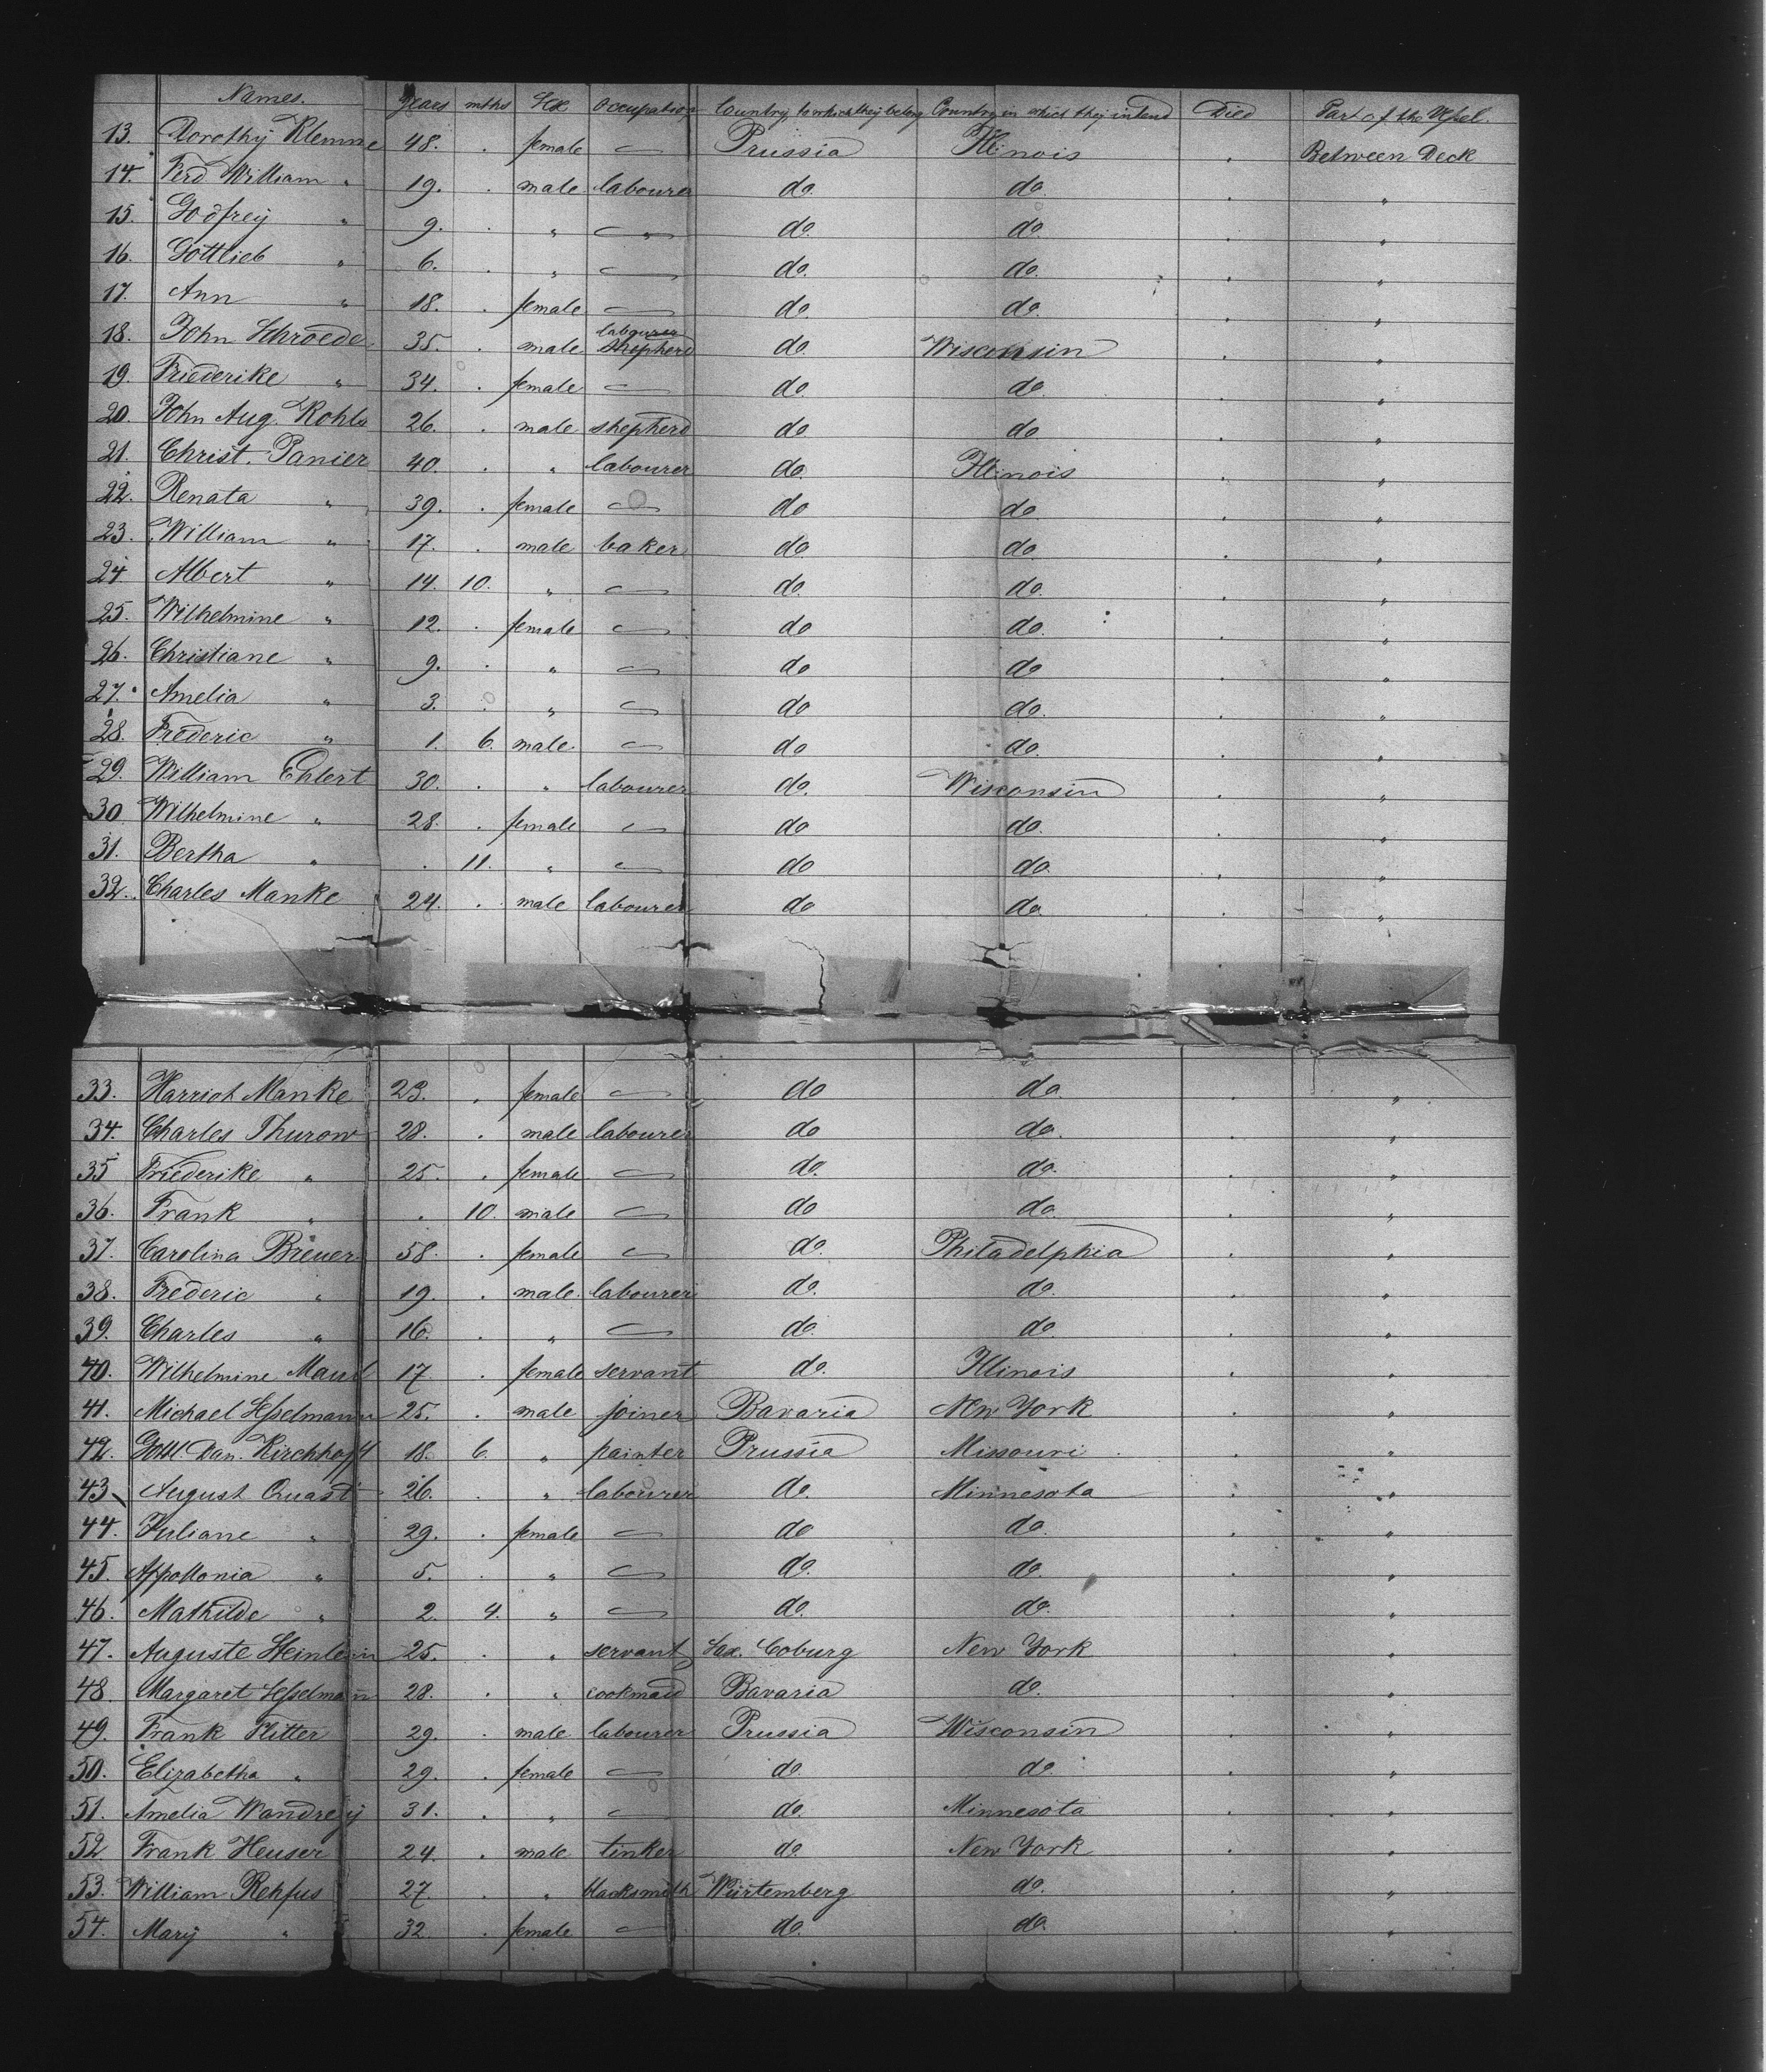 Names. Years mths Sex Occupation Country to which they belong Country in which they intend Died Part of the Vessel.
13. Dorothy Klemme 48. . female — Prussia Illinois . Between Deck
14. Ferd William " 19. . male labourer do do. . "
15. Godfrey " 9. . " — do. do. . "
16. Gottlieb " 6. . " — do. do. . "
17. Ann " 18. . female — do do. . "
18. John Schroeder 35. . male labourer shepherd do. Wisconsin . "
19. Friederike " 34. . female — do do. . "
20. John Aug. Kohls 26. . male shepherd do do . "
21. Christ. Panier 40. . " labourer do. Illinois . "
22. Renata " 39. . female — do do . "
23. William " 17. . male baker do. do. . "
24 Albert " 14. 10. " — do. do. . "
25. Wilhelmine " 12. . female — do do. . "
26. Christiane " 9. . " — do do . "
27. Amelia " 3. . " — do do. . "
28. Frederic " 1. 6. male. — do do. . "
29. William Ehlert 30. . " labourer do. Wisconsin . "
30 Wilhelmine " 28. . female — do do. . "
31. Bertha " . 11. " — do do. . "
32. Charles Manke 24. . male labourer do do . "
33. Harriot Manke 23. . female — do do . "
34. Charles Thurow 28. . male labourer do do. . "
35 Friederike " 25. . female — do. do. . "
36. Frank " . 10. male — do do. . "
37. Carolina Breuer 58. . female — do. Philadelphia . "
38. Frederic " 19. . male. labourer do. do. . "
39. Charles " 16. . " — do. do. . "
40. Wilhelmine 17 . female servant do. Illinois . "
41. Michael Hesselmann 25. . male joiner Bavaria New York . "
42. Gottl. Dan. Kirchhoff 18. 6. " painter Prussia Missouri . "
43 August Quast 26. . " labourer do. Minnesota . "
44. Juliane " 29. . female — do do. . "
45. Appollonia " 5. . " — do. do. . "
46. Mathilde " 2. 4. " — do. do. . "
47. Auguste Steinlein 25. . " servant Sax. Coburg New York . "
48. Margaret Hesselmann 28. . " cookmaid Bavaria do. . "
49. Frank Ritter 29. . male labourer Prussia Wisconsin . "
50. Elizabetha " 29. . female — do. do. . "
51. Amelia Wandrey 31. . " — do. Minnesota . "
52 Frank Heuser 24. . male tinker do. New York . "
53. William Rehfus 27. . " blacksmith Würtemberg do. . "
54. Mary " 32. . female — do. do. . "